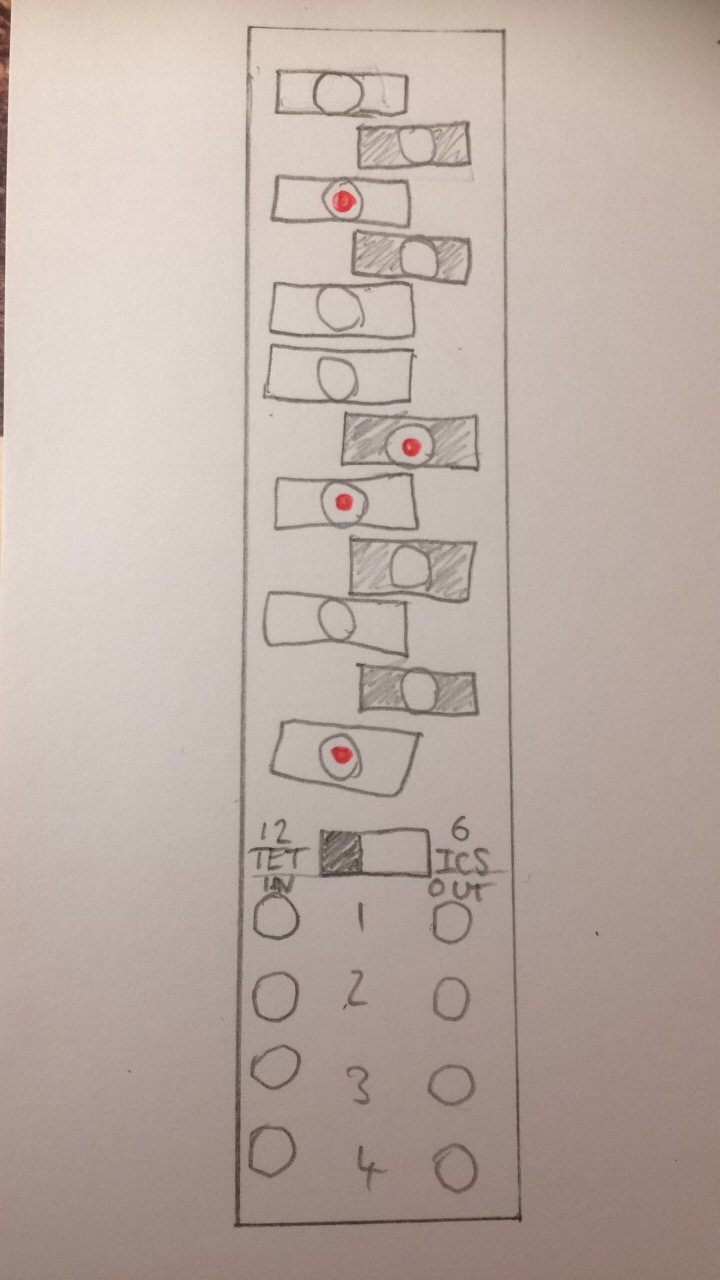 12 6
TET ICS
IN OUT
1
2
3
4